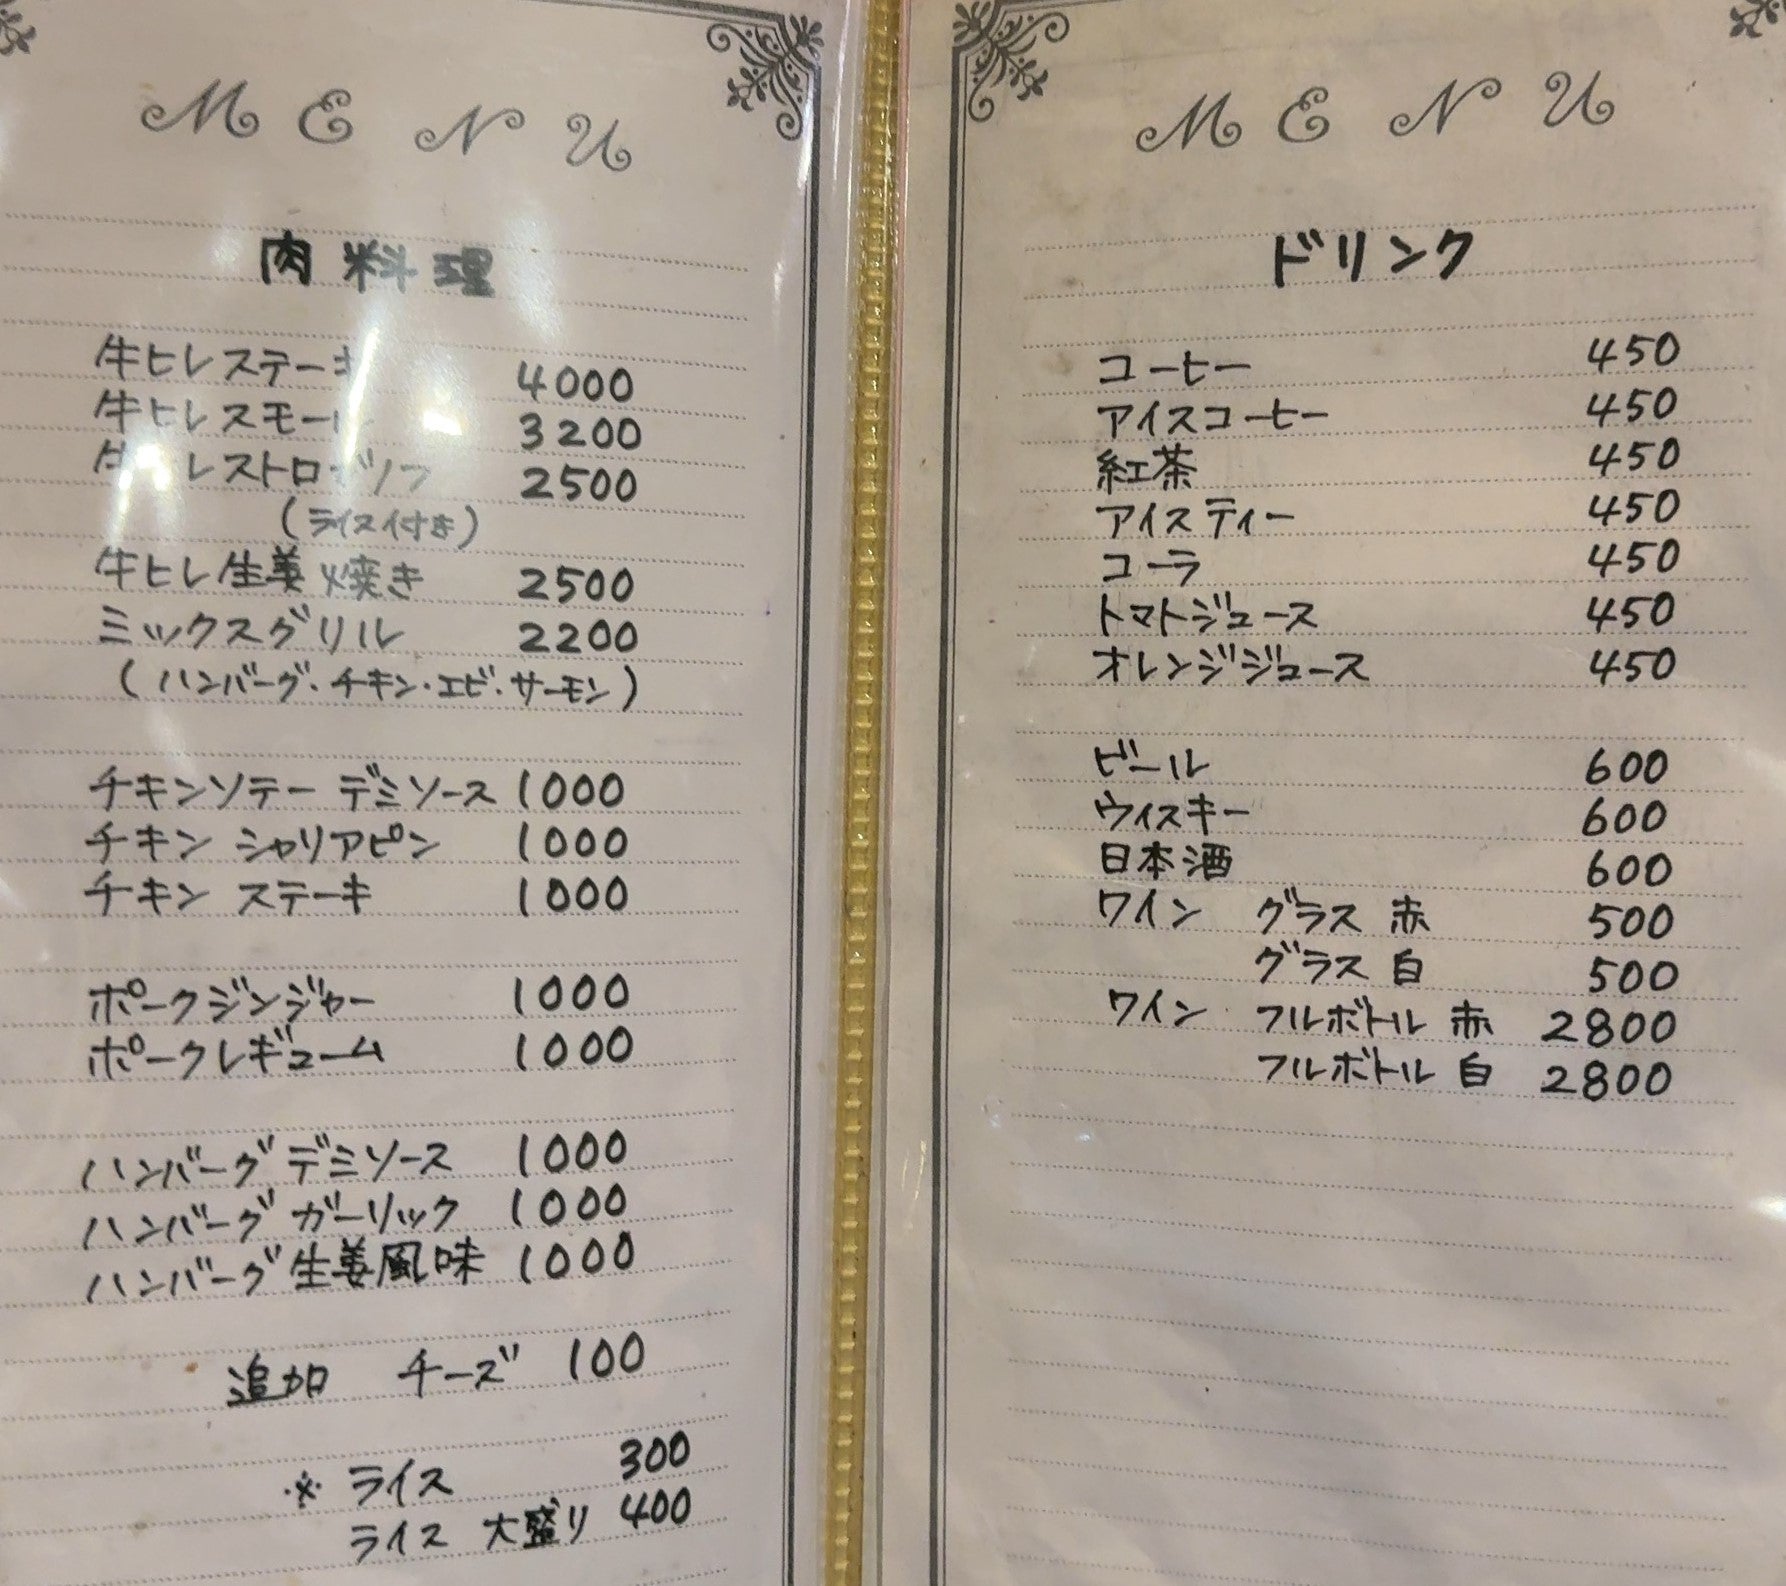 MENU
肉料理
牛ヒレステーキ 4000
牛ヒレスモール 3200
牛ヒレストロガノフ 2500
(ライス付き)
牛ヒレ生姜焼き 2500
ミックスグリル 2200
(ハンバーグ・チキン・エビ・サーモン)
チキンソテー デミソース 1000
チキン シャリアピン 1000
チキン ステーキ 1000
ポークジンジャー 1000
ポークレギューム 1000
ハンバーグ デミソース 1000
ハンバーグ ガーリック 1000
ハンバーグ 生姜風味 1000
追加 チーズ 100
※ ライス 300
ライス 大盛り 400
MENU
ドリンク
コーヒー 450
アイスコーヒー 450
紅茶 450
アイスティー 450
コーラ 450
トマトジュース 450
オレンジジュース 450
ビール 600
ウィスキー 600
日本酒 600
ワイン グラス 赤 500
グラス 白 500
ワイン フルボトル 赤 2800
フルボトル 白 2800